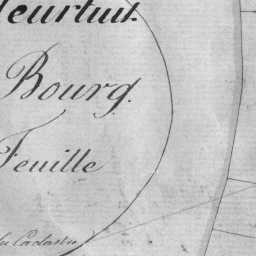 leurtuit.
Bourg.
Feuille
du Cadastre